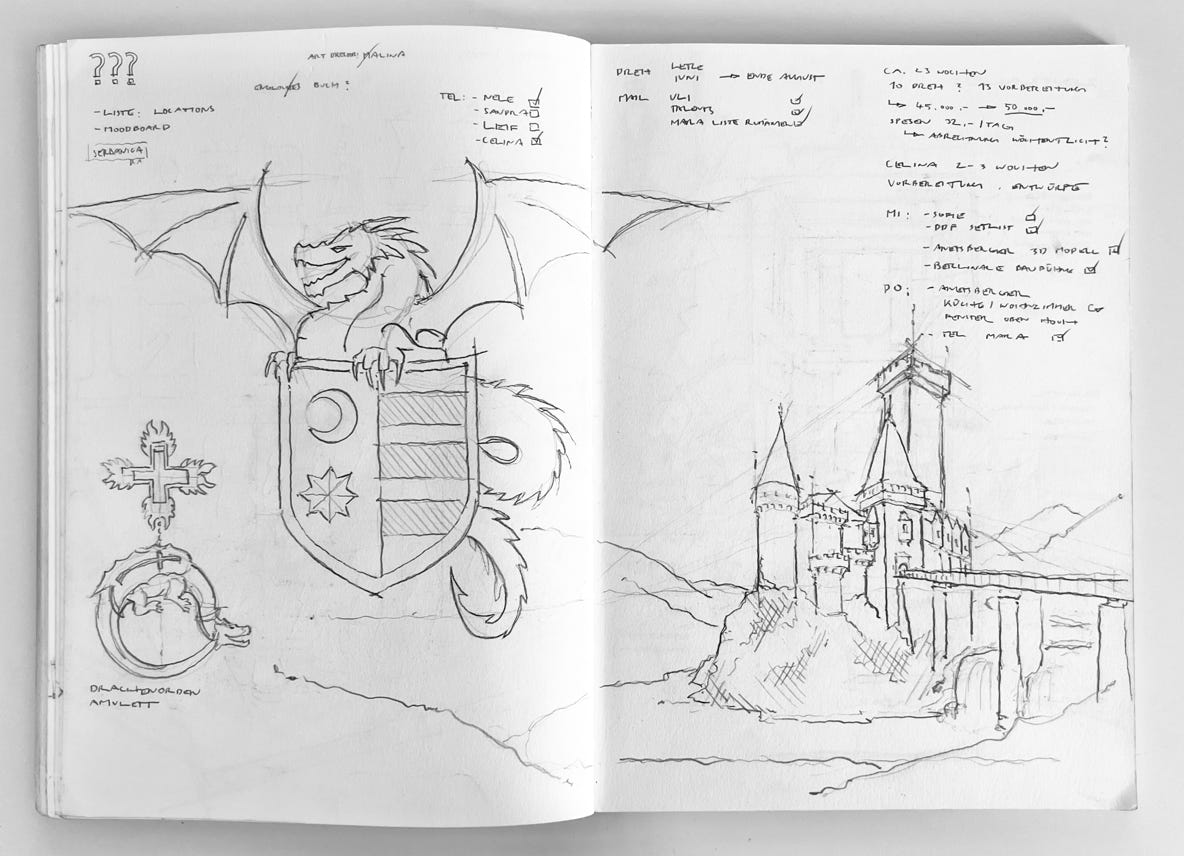 ???
ART DEKOR: MALINA
BUCH?
- LISTE: LOCATIONS
- MOODBOARD
TEL: - NELE
- SANDRA
- LEIF
- CELINA
DRACHENORDEN
AMULETT
DREH LETZE
JUNI → ENDE AUGUST
MAIL ULI
MARA LISTE RUMÄNIEN
CA. 23 WOCHEN
10 DREH ? 13 VORBEREITUNG
↳ 45.000.- → 50.000.-
SPESEN 32.-/TAG
↳ ABRECHNUNG WÖCHENTLICH?
CELINA 2-3 WOCHEN
VORBEREITUNG. ENTWÜRFE
MI: - SOFIE
- DDF SETLIST
- AMETSBERGER 3D MODELL
- BERLINALE
DO: - AMETSBERGER
KÜCHE/WOHNZIMMER
FENSTER OBEN HOCH
- TEL MARA